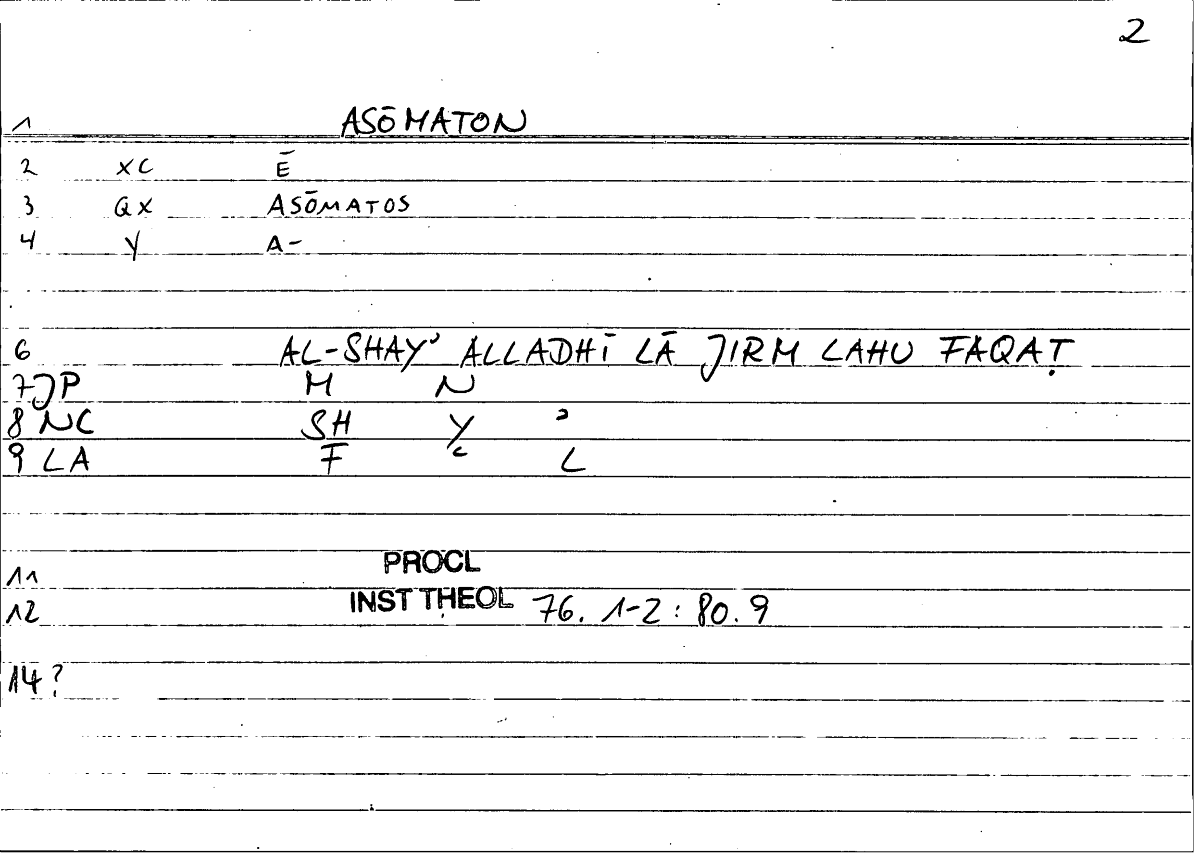 2
1 ASŌMATON
2 XC Ē
3 QX ASŌMATOS
4 Y A-
6 AL-SHAY' ALLADHĪ LĀ JIRM LAHU FAQAṬ
7 JP M N
8 NC SH Y ʾ
9 LA F ʿ L
11 PROCL
12 INST THEOL 76. 1-2 : 80. 9
14 ?